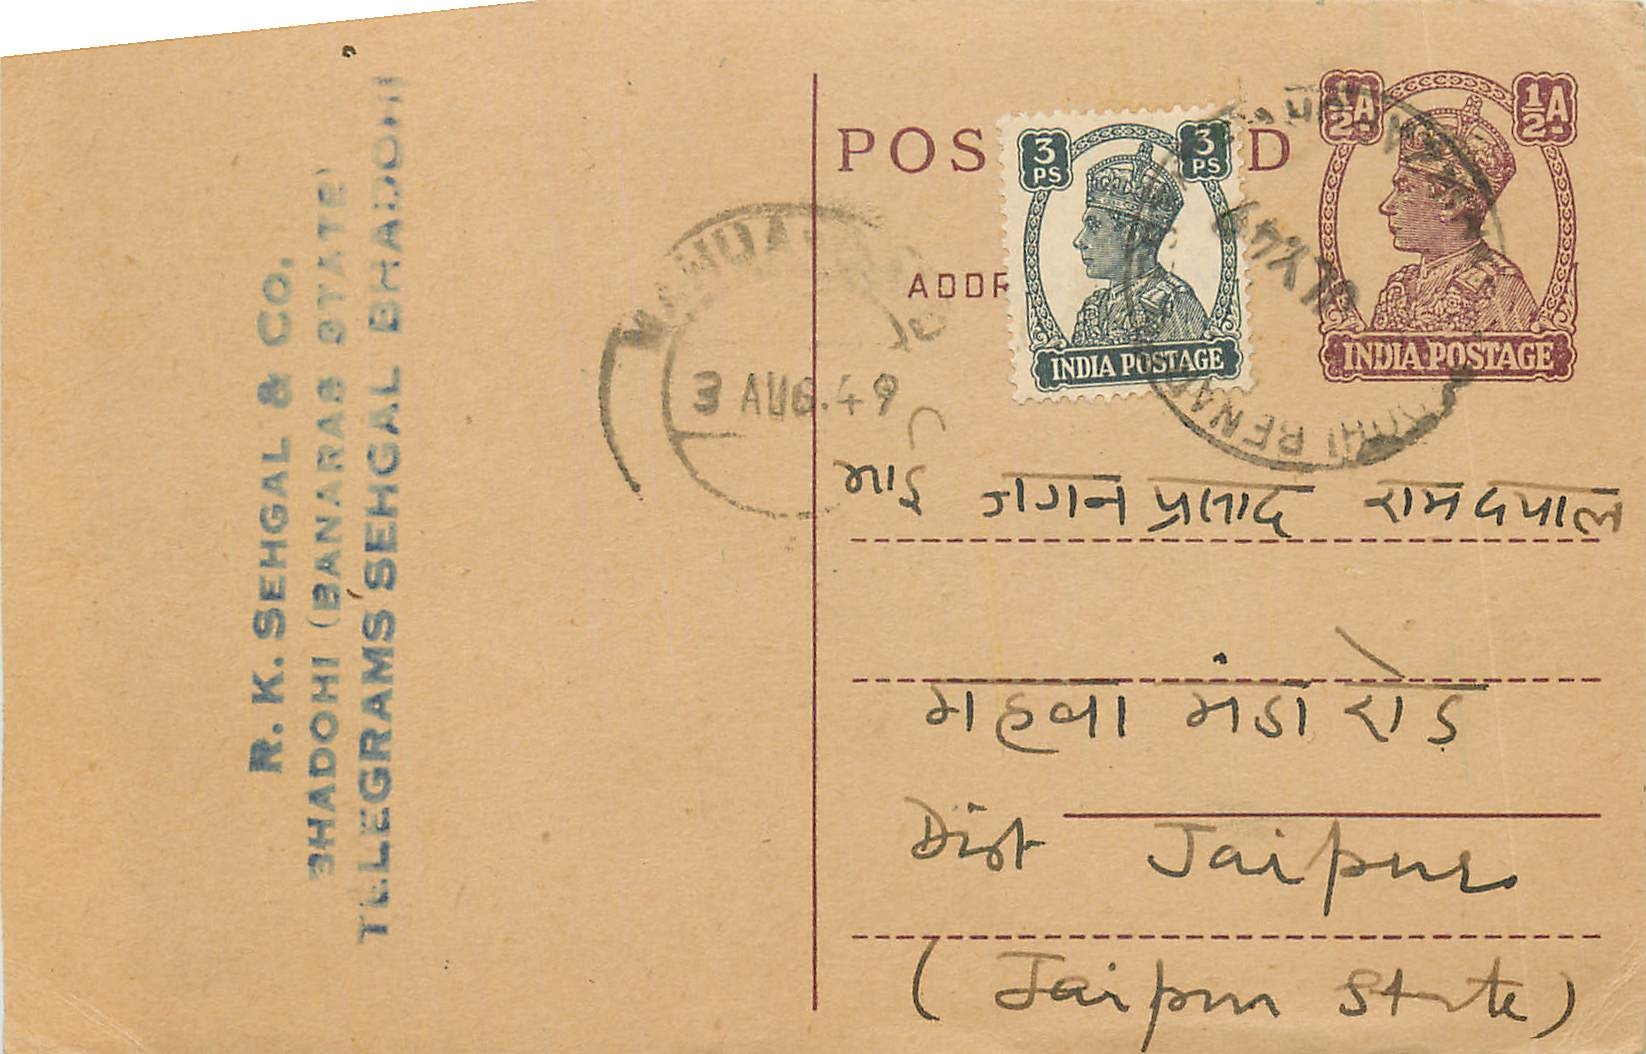 R. K. SEHGAL & CO.
BHADOHI (BANARAS STATE)
TELEGRAMS 'SEHGAL' BHADOHI
POS D
ADDR
3 PS 3 PS
INDIA POSTAGE
½A ½A
INDIA POSTAGE
3 AUG. 49
भाई जगन प्रसाद रामदयाल
महवा मंडा रोड
Dist Jaipur
(Jaipur State)